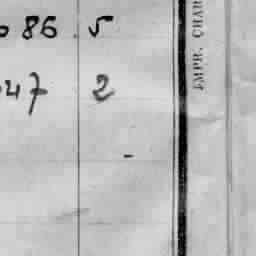 86.5
47 2
-
IMPR. CHAR